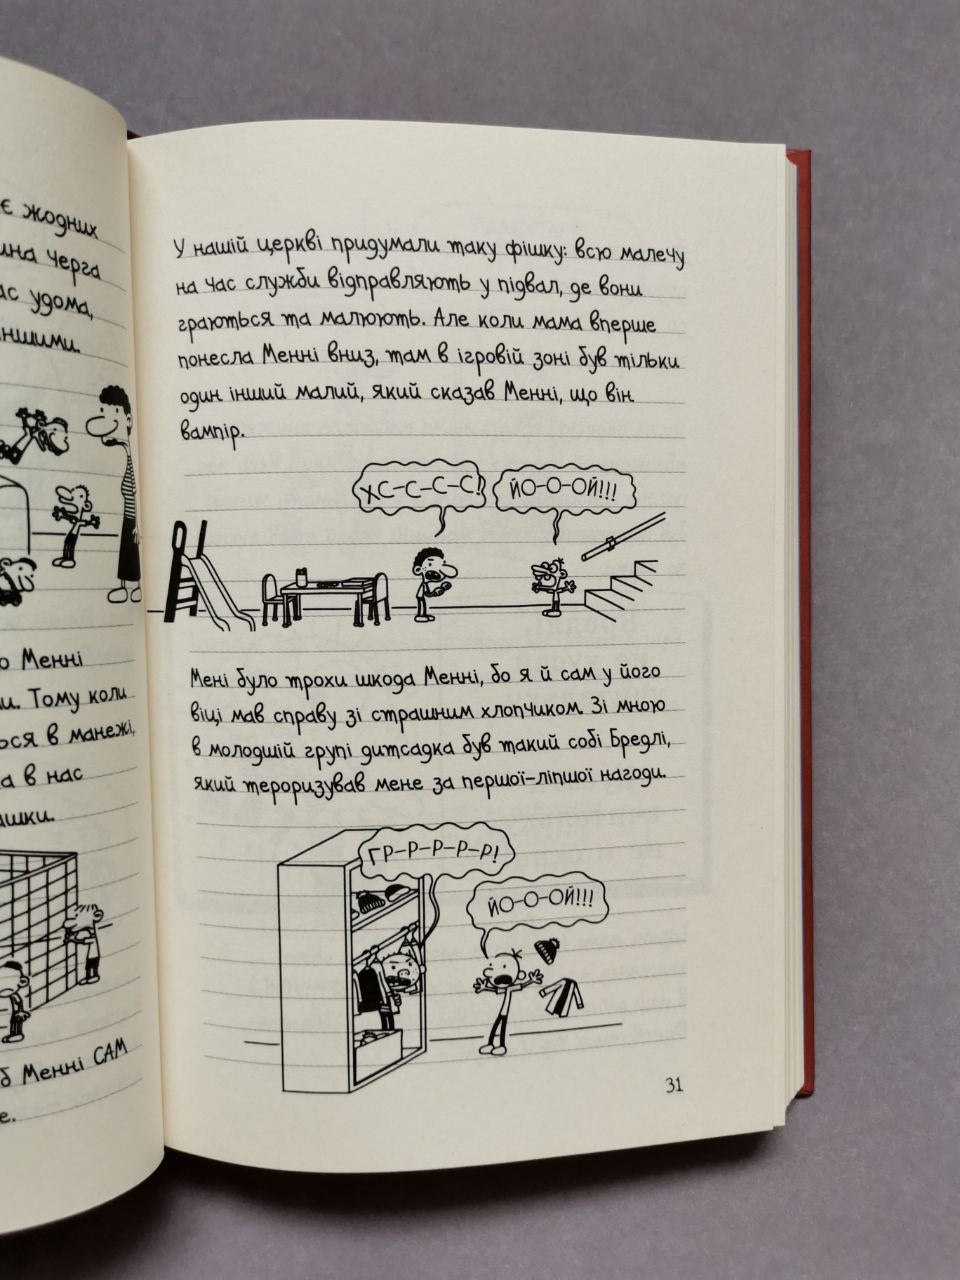 є жодних
черга
удома,
Менні
Тому коли
в манежі,
в нас
Менні САМ
У нашій церкві придумали таку фішку: всю малечу
на час служби відправляють у підвал, де вони
граються та малюють. Але коли мама вперше
понесла Менні вниз, там в ігровій зоні був тільки
один інший малий, який сказав Менні, що він
вампір.
ХС-С-С-С!
ЙО-О-ОЙ!!!
Мені було трохи шкода Менні, бо я й сам у його
віці мав справу зі страшним хлопчиком. Зі мною
в молодшій групі дитсадка був такий собі Бредлі,
який тероризував мене за першої-ліпшої нагоди.
ГР-Р-Р-Р-Р!
ЙО-О-ОЙ!!!
31